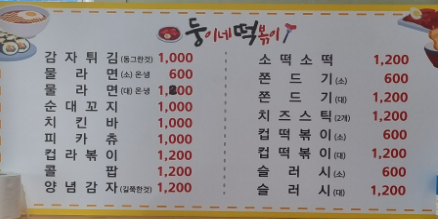 둥이네떡볶이
감자튀김(동그란것) 1,000
물라면(소)온냉 600
물라면(대)온냉 1,800
순대꼬지 1,000
치킨바 1,000
피카츄 1,000
컵라볶이 1,200
콜팝 1,200
양념감자(길쭉한것) 1,200
소떡소떡 1,200
쫀드기(소) 600
쫀드기(대) 1,200
치즈스틱(2개) 1,200
컵떡볶이(소) 600
컵떡볶이(대) 1,200
슬러시(소) 600
슬러시(대) 1,200